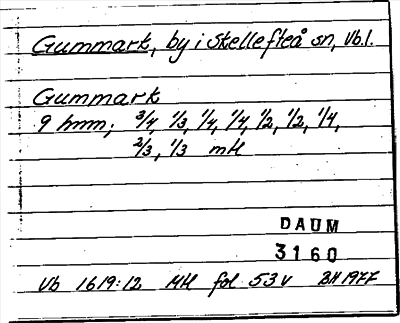 Gummark, by i Skellefteå sn, Vb.l.
Gummark
9 hmn; 3/4, 1/3, 1/4, 1/4, 1/2, 1/2, 1/4,
2/3, 1/3 mtl
DAUM
3160
Vb 1619:12 Mtl fol 53v BH 1977